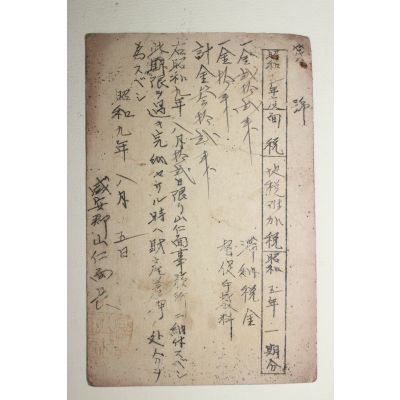 第 號
昭和 年度面税 地税附加税 昭和五年 一期分
一金貳拾貳錢 滯納税金
一金拾錢 督促手數料
計金參拾貳錢
右昭和九年八月拾 日限リ山仁面事務所ニ納付スベシ
此期限ヲ過キ完納セサル時ハ財産差押 処分ヲ
為スベシ
昭和九年 八月 五日
咸安郡山仁面長